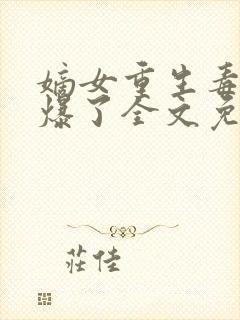 嫡女重生毒
爆了全文免
莊佳